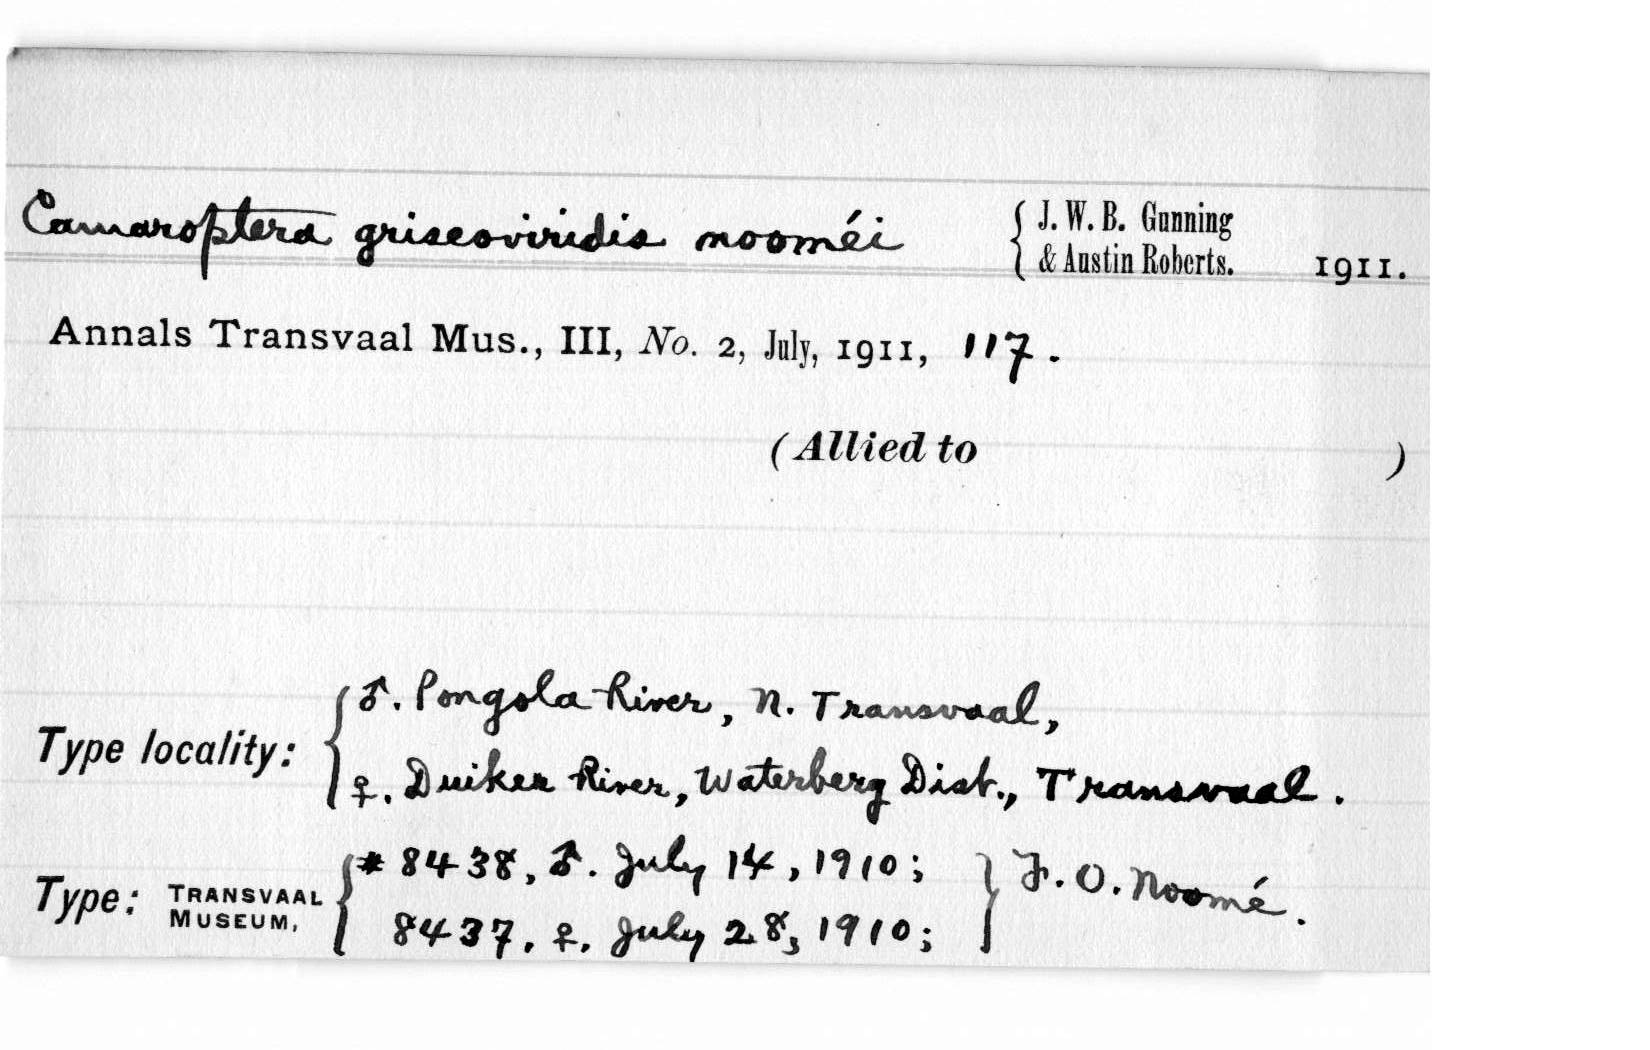 Camaroptera griseoviridis nooméi { J. W. B. Gunning
& Austin Roberts. 1911.
Annals Transvaal Mus., III, No. 2, July, 1911, 117.
(Allied to )
Type locality: { ♂. Pongola River, N. Transvaal,
♀. Duiker River, Waterberg Dist., Transvaal.
Type: TRANSVAAL MUSEUM, { * 8438, ♂. July 14, 1910; } F. O. Noomé.
8437, ♀. July 28, 1910;